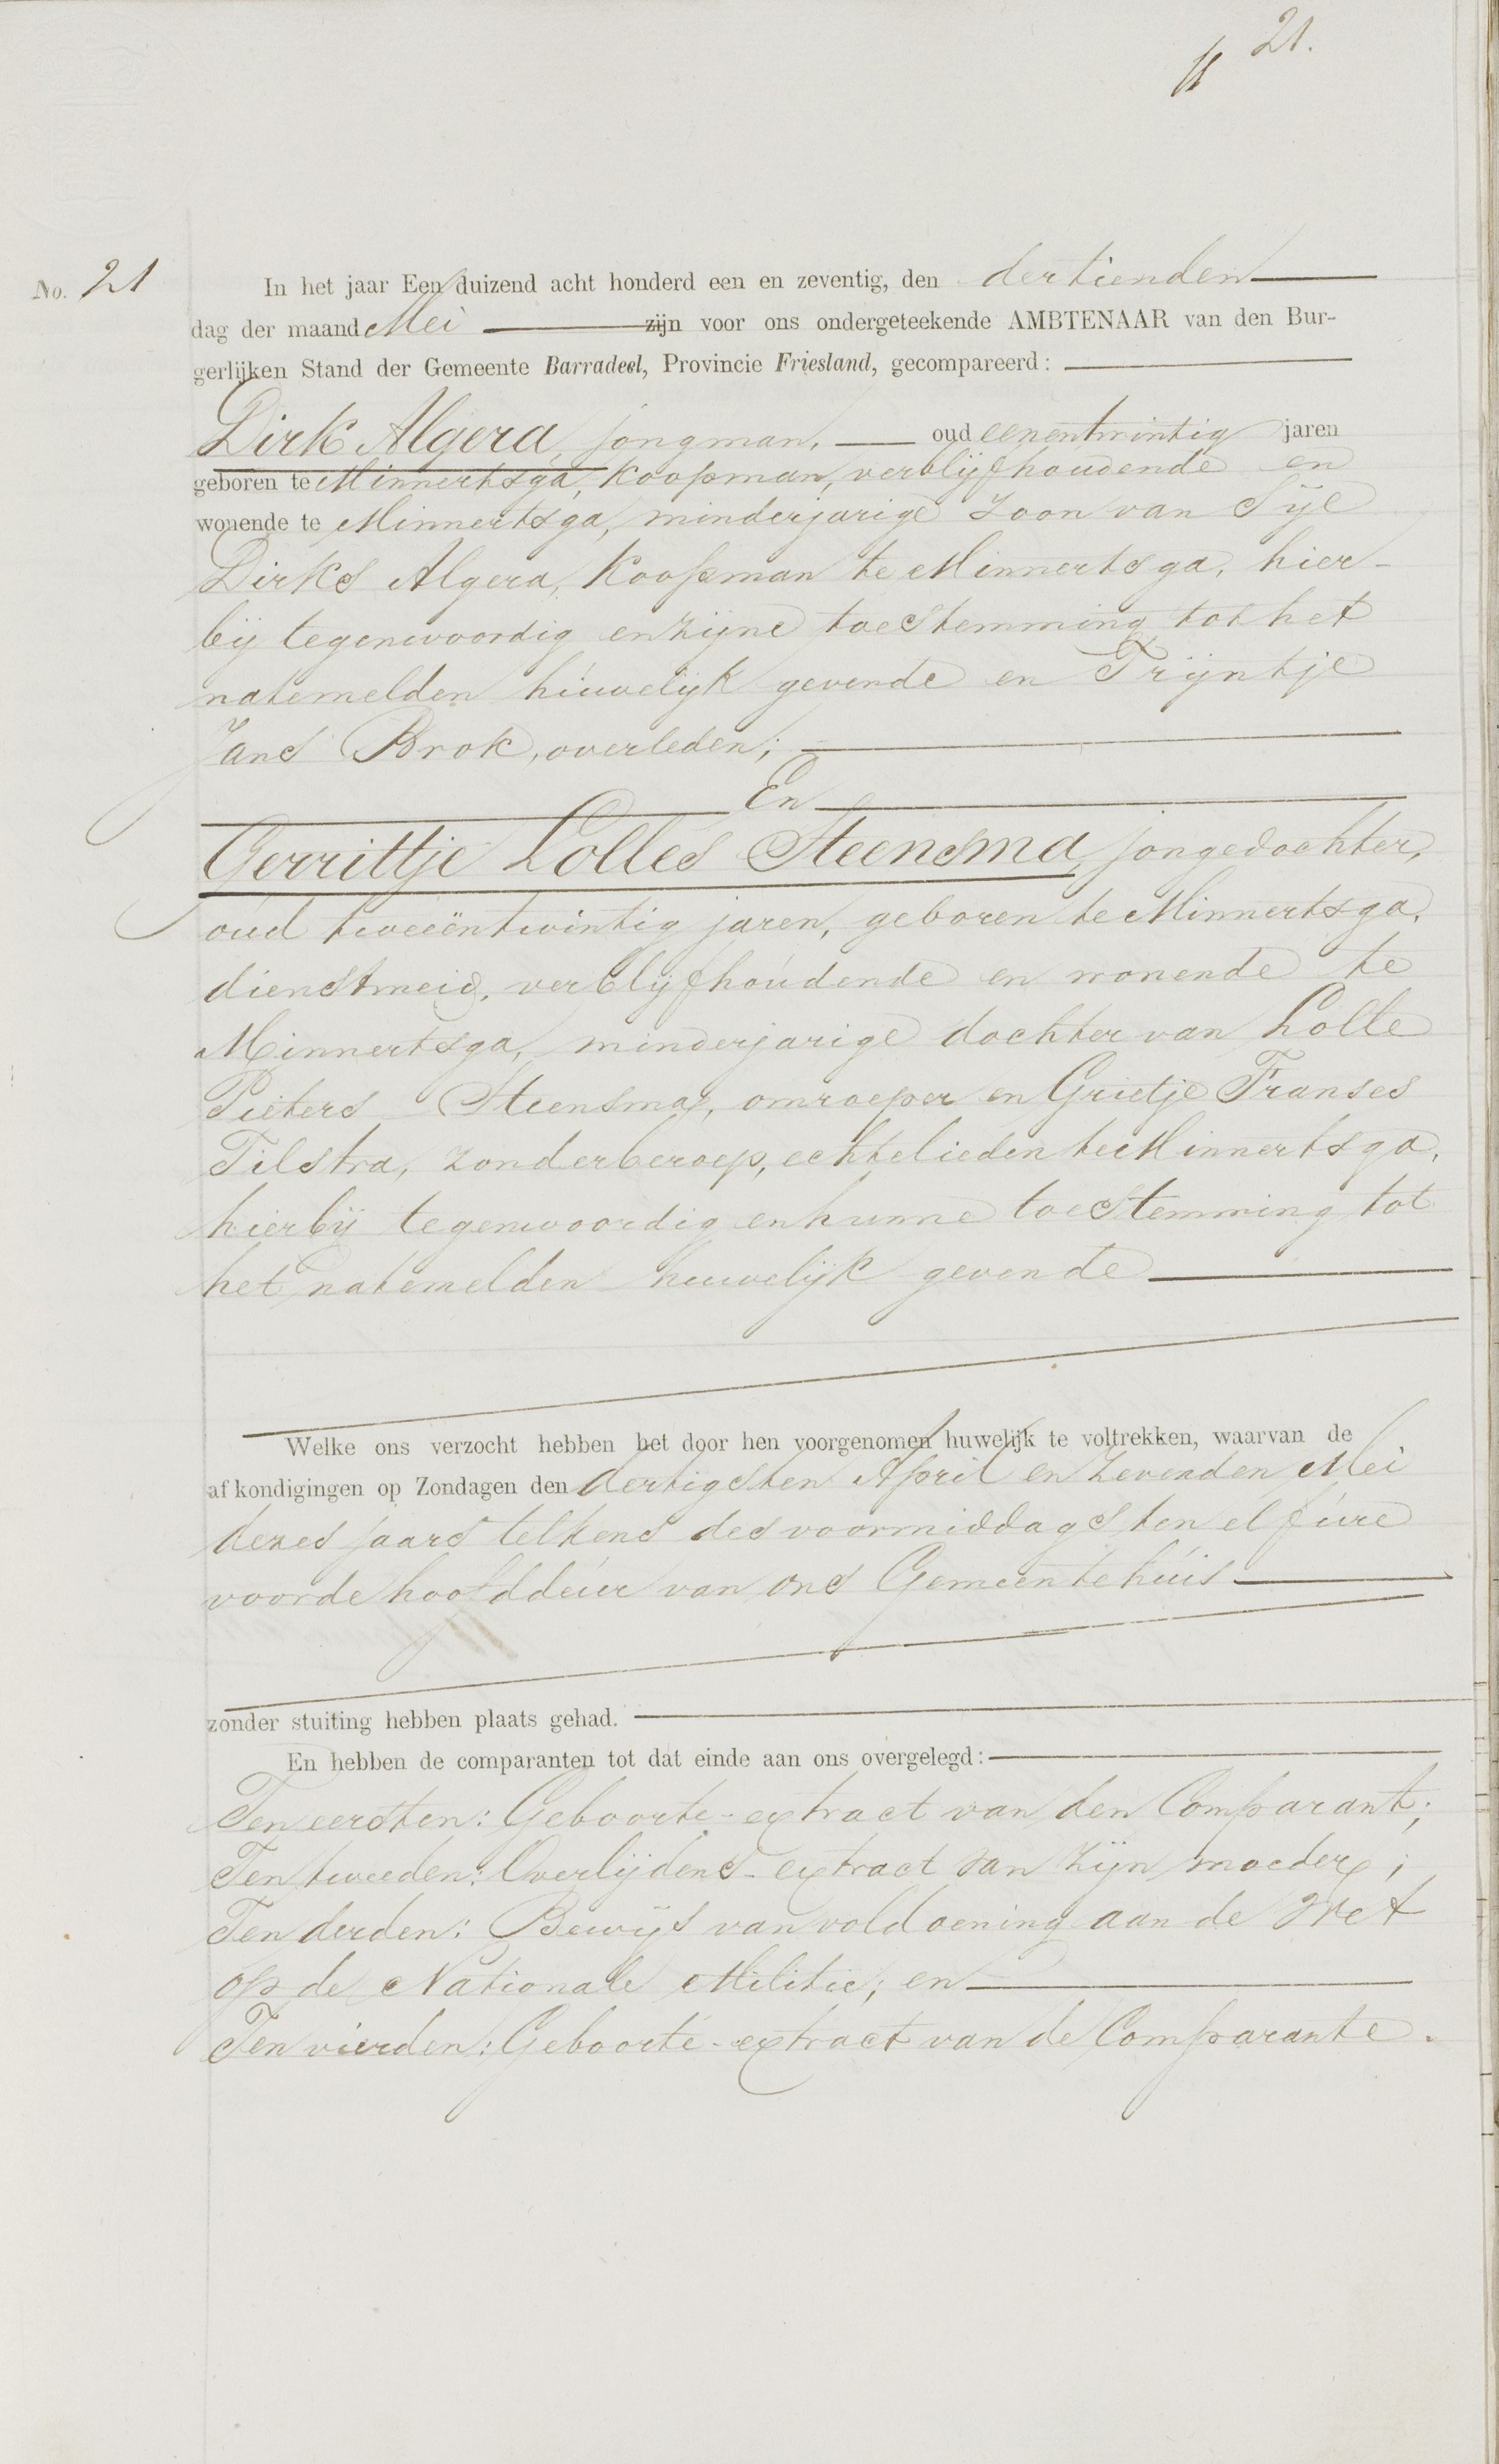 21.
No. 21
In het jaar Een duizend acht honderd een en zeventig, den dertienden
dag der maand Mei zijn voor ons ondergeteekende AMBTENAAR van den Bur-
gerlijken Stand der Gemeente Barradeel, Provincie Friesland, gecompareerd:
Dirk Algera, jongman, oud eenentwintig jaren
geboren te Minnertsga, koopman, verblijfhoudende en
wonende te Minnertsga, minderjarige zoon van Sije
Dirks Algera, Koopman te Minnertsga, hier-
bij tegenwoordig en zijne toestemming tot het
natemelden huwelijk gevende en Trijntje
Jans Brok, overleden;
En
Gerrittje Lolles Steensma, jongedochter,
oud tweeëntwintig jaren, geboren te Minnertsga,
dienstmeid, verblijfhoudende en wonende te
Minnertsga, minderjarige dochter van Lolle
Pieters Steensma, omroeper en Grietje Franses
Tilstra, zonder beroep, echtelieden te Minnertsga,
hierbij tegenwoordig en hunne toestemming tot
het natemelden huwelijk gevende
Welke ons verzocht hebben het door hen voorgenomen huwelijk te voltrekken, waarvan de
afkondigingen op Zondagen den dertigsten April en zevenden Mei
dezes jaars telkens des voormiddags ten elf ure
voor de hoofddeur van ons Gemeentehuis
zonder stuiting hebben plaats gehad.
En hebben de comparanten tot dat einde aan ons overgelegd:
Ten eersten: Geboorte-extract van den Comparant;
Ten tweeden: Overlijdens-extract van zijn moeder;
Ten derden: Bewijs van voldoening aan de Wet
op de Nationale Militie; en
Ten vierden: Geboorte-extract van de Comparante.